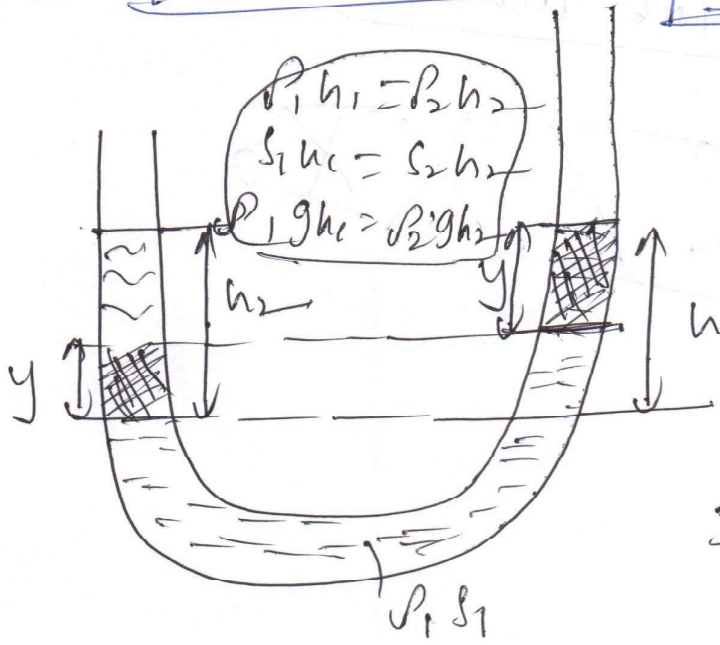 ρ₁h₁ = ρ₂h₂
S₁h₁ = S₂h₂
ρ₁gh₁ = ρ₂gh₂
y
h₂
h
y
ρ₁ S₁